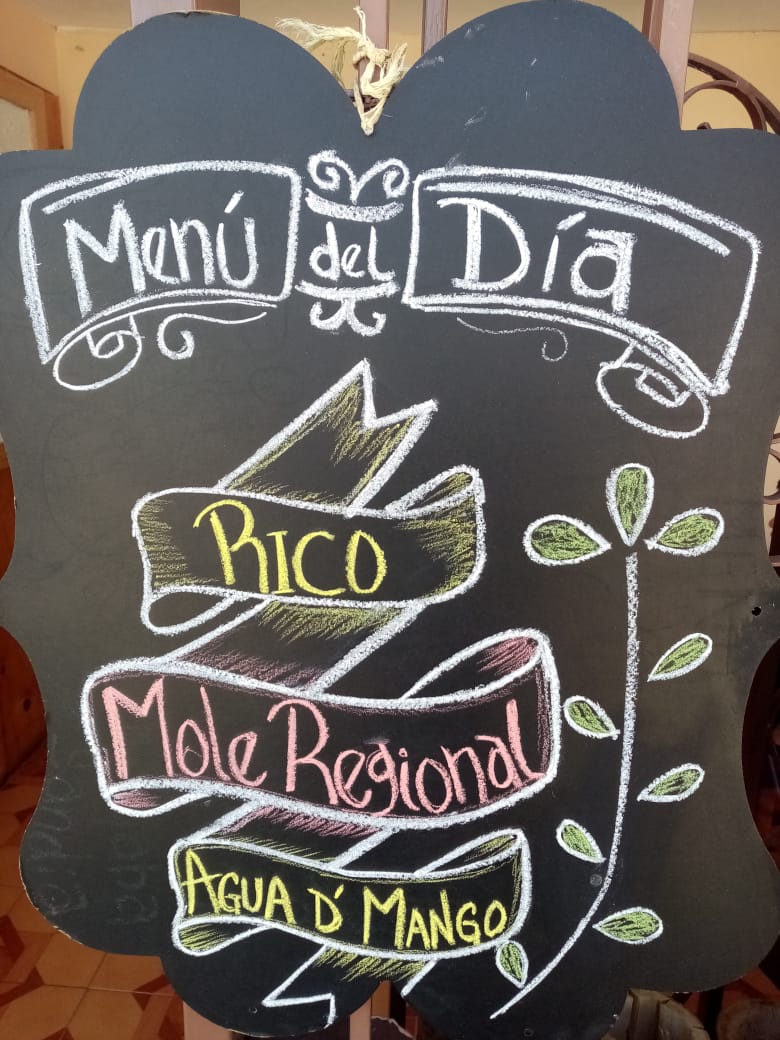 Menú del Día
RICO
Mole Regional
AGUA D' MANGO